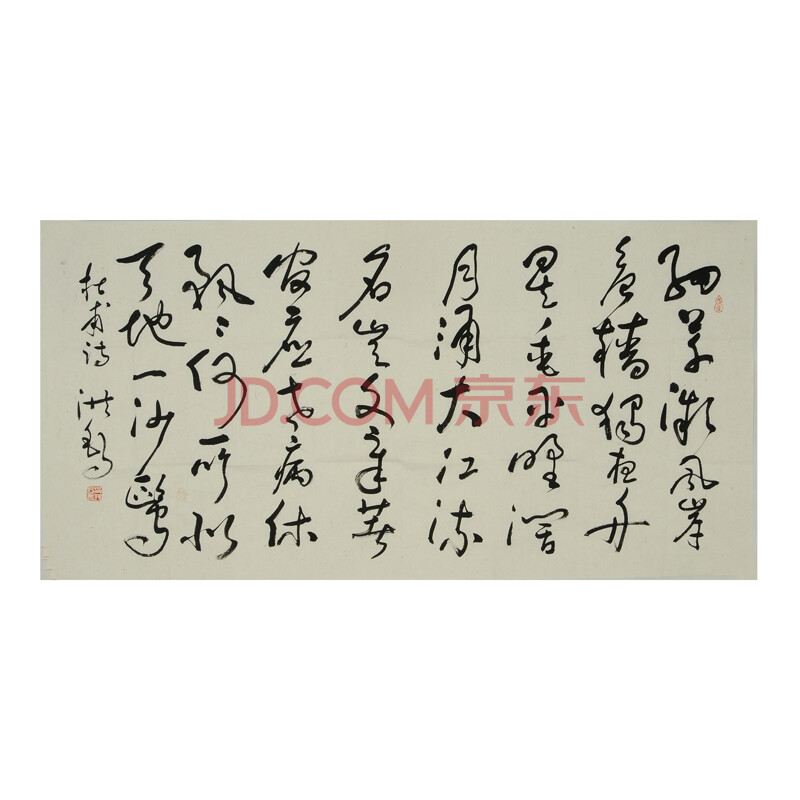 细草微风岸
危樯独夜舟
星垂平野阔
月涌大江流
名岂文章著
官应老病休
飘飘何所似
天地一沙鸥
杜甫诗 洪
JD.COM 京东